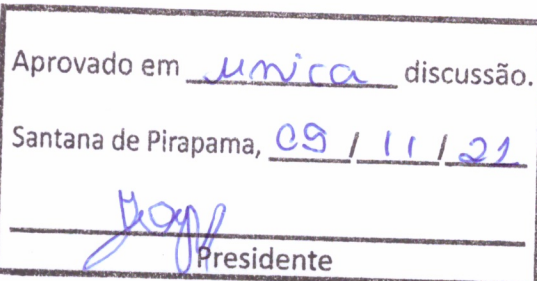 Aprovado em unica discussão.
Santana de Pirapama, 09 / 11 / 21
Presidente